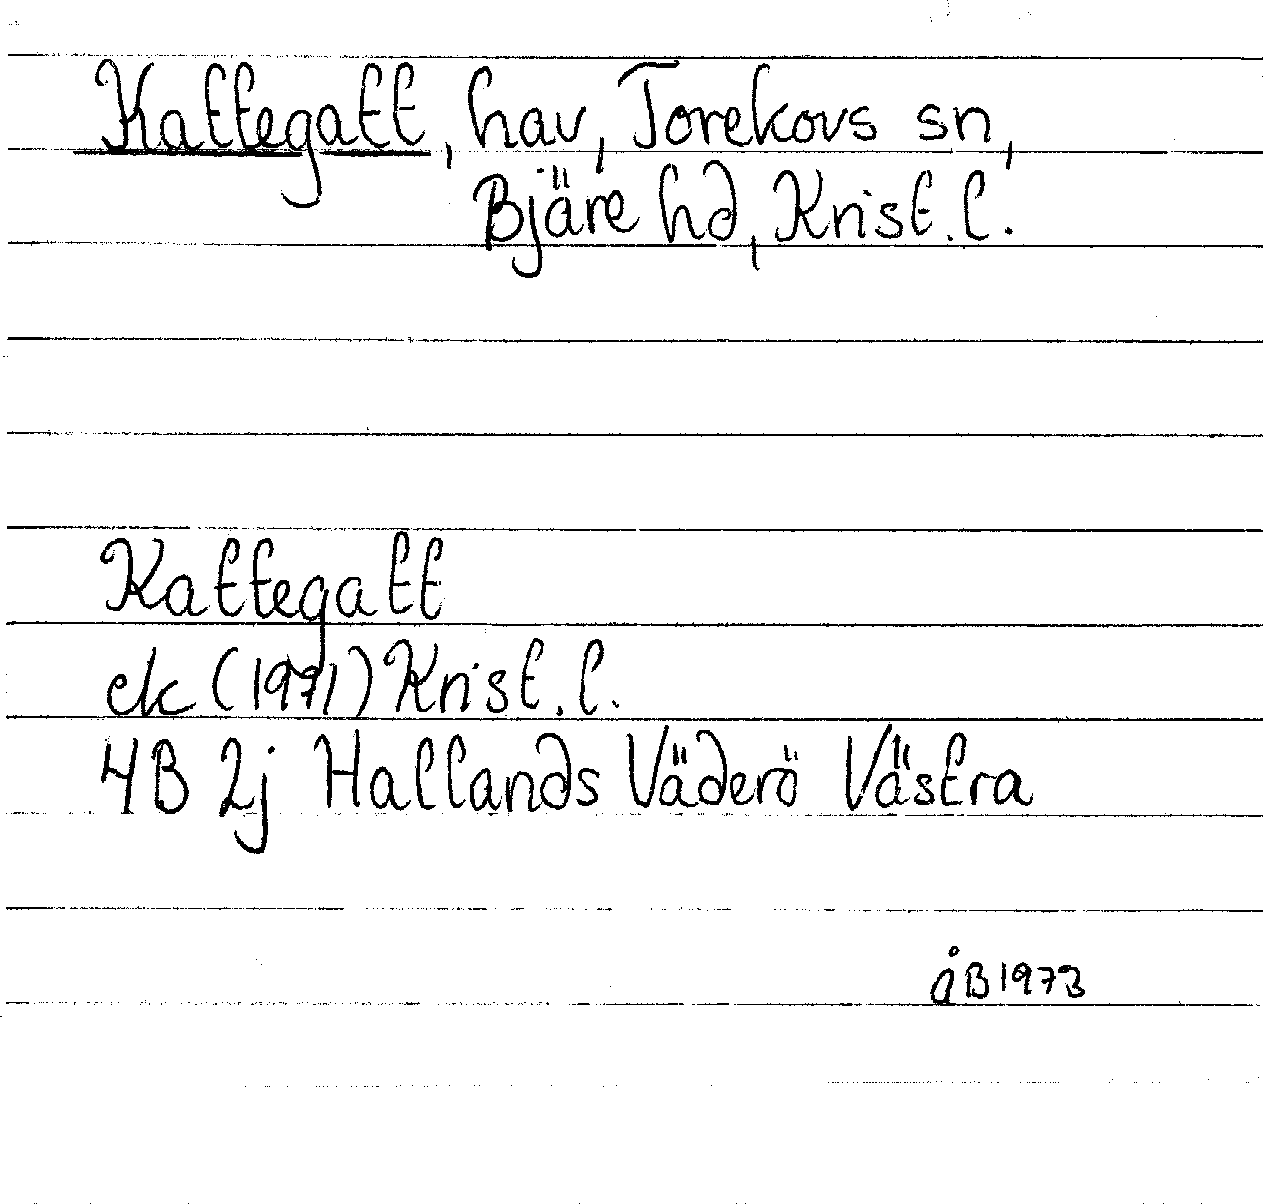 Kattegatt, hav, Torekovs sn,
Bjäre hd, Krist. l.
Kattegatt
ek (1971) Krist. l.
4B 2j Hallands Väderö Västra
åB 1973